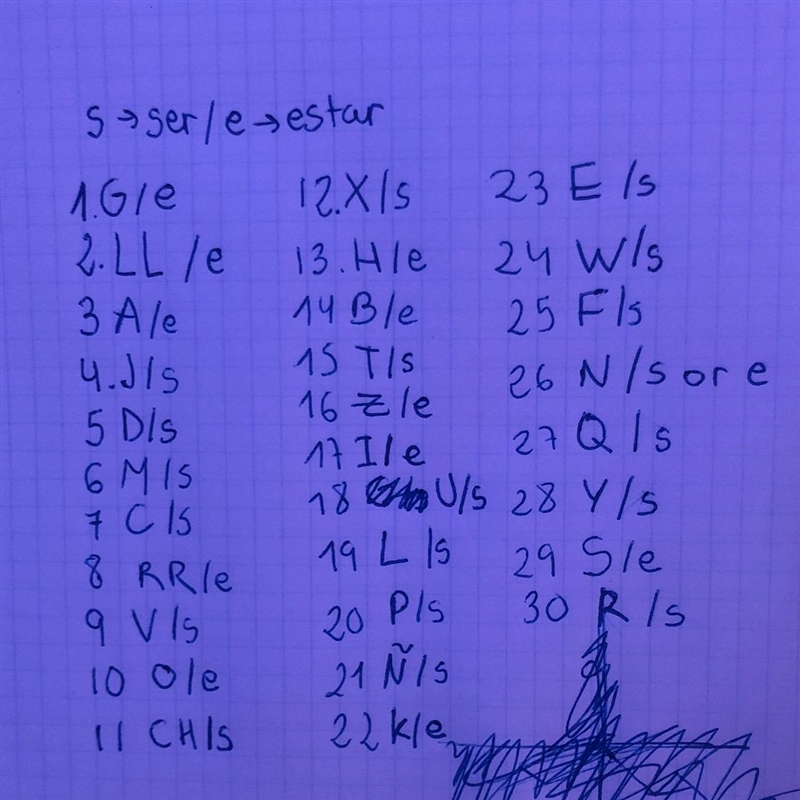 s→ser/e→estar
1.G/e
2.LL/e
3 A/e
4.J/s
5 D/s
6 M/s
7 C/s
8 RR/e
9 V/s
10 O/e
11 CH/s
12.X/s
13.H/e
14 B/e
15 T/s
16 Z/e
17 I/e
18 U/s
19 L/s
20 P/s
21 Ñ/s
22 K/e
23 E/s
24 W/s
25 F/s
26 N/s or e
27 Q/s
28 Y/s
29 S/e
30 R/s